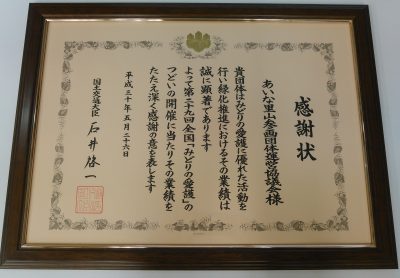 感謝状
あいな里山参画団体運営協議会様
貴団体はみどりの愛護に優れた活動を
行い緑化推進におけるその業績は
誠に顕著であります
よって第二十九回全国「みどりの愛護」の
つどいの開催に当たりその業績を
たたえ深く感謝の意を表します
平成三十年五月二十六日
国土交通大臣 石井啓一